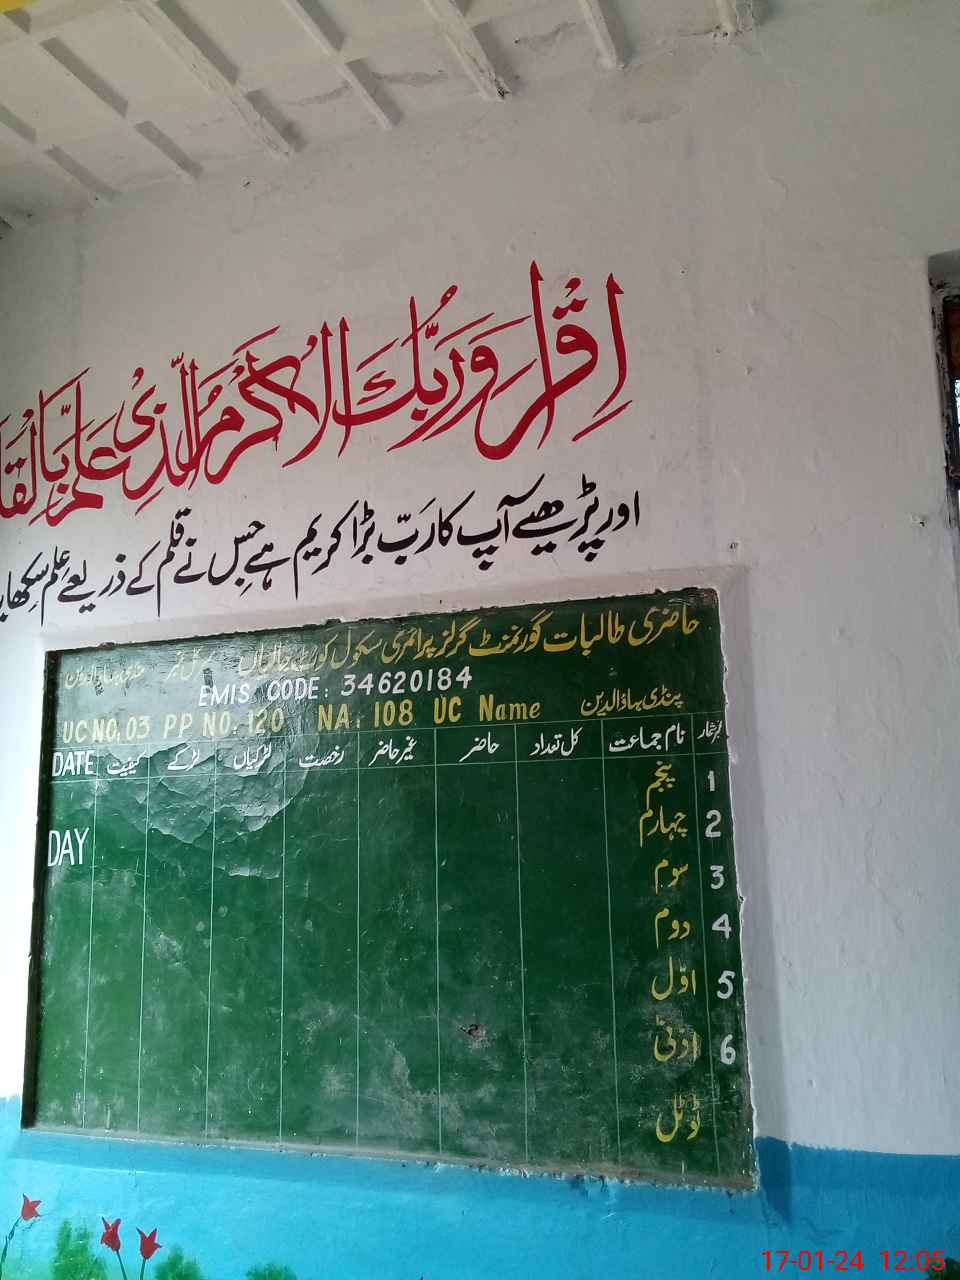 اقرا وربك الاكرم الذي علم بالقل
اور پڑھیے آپ کا رَبّ بڑا کریم ہے جس نے قلم کے ذریعے علم سکھایا
حاضری طالبات گورنمنٹ گرلز پرائمری سکول کوٹ
EMIS CODE: 34620184
منڈی بہاؤالدین
UC NO. 03 PP NO. 120 NA. 108 UC Name
نمبر شمار نام جماعت کل تعداد حاضر غیر حاضر رخصت لڑکیاں لڑکے کیفیت DATE
1 پنجم
2 چہارم
DAY
3 سوم
4 دوم
5 اوّل
6 ادنیٰ
ٹوٹل
17-01-24 12:05